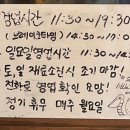 영업시간 11:30~19:30
(브레이크타임) 14:30~
일요일 영업시간 11:30~
토,일 재료소진시 조기 마감!
전화로 영업확인 요망!
정기 휴무 매주 월요일